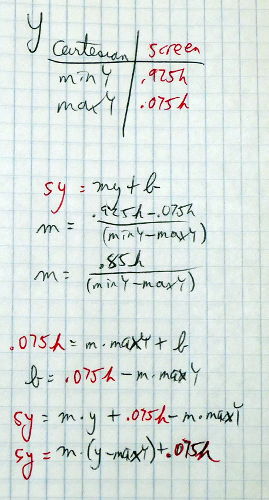 y
Cartesian screen
minY .925h
maxY .075h
sy = my + b
m = .925h - .075h
(minY - maxY)
m = .85h
(minY - maxY)
.075h = m · maxY + b
b = .075h - m · maxY
sy = m · y + .075h - m · maxY
sy = m · (y - maxY) + .075h